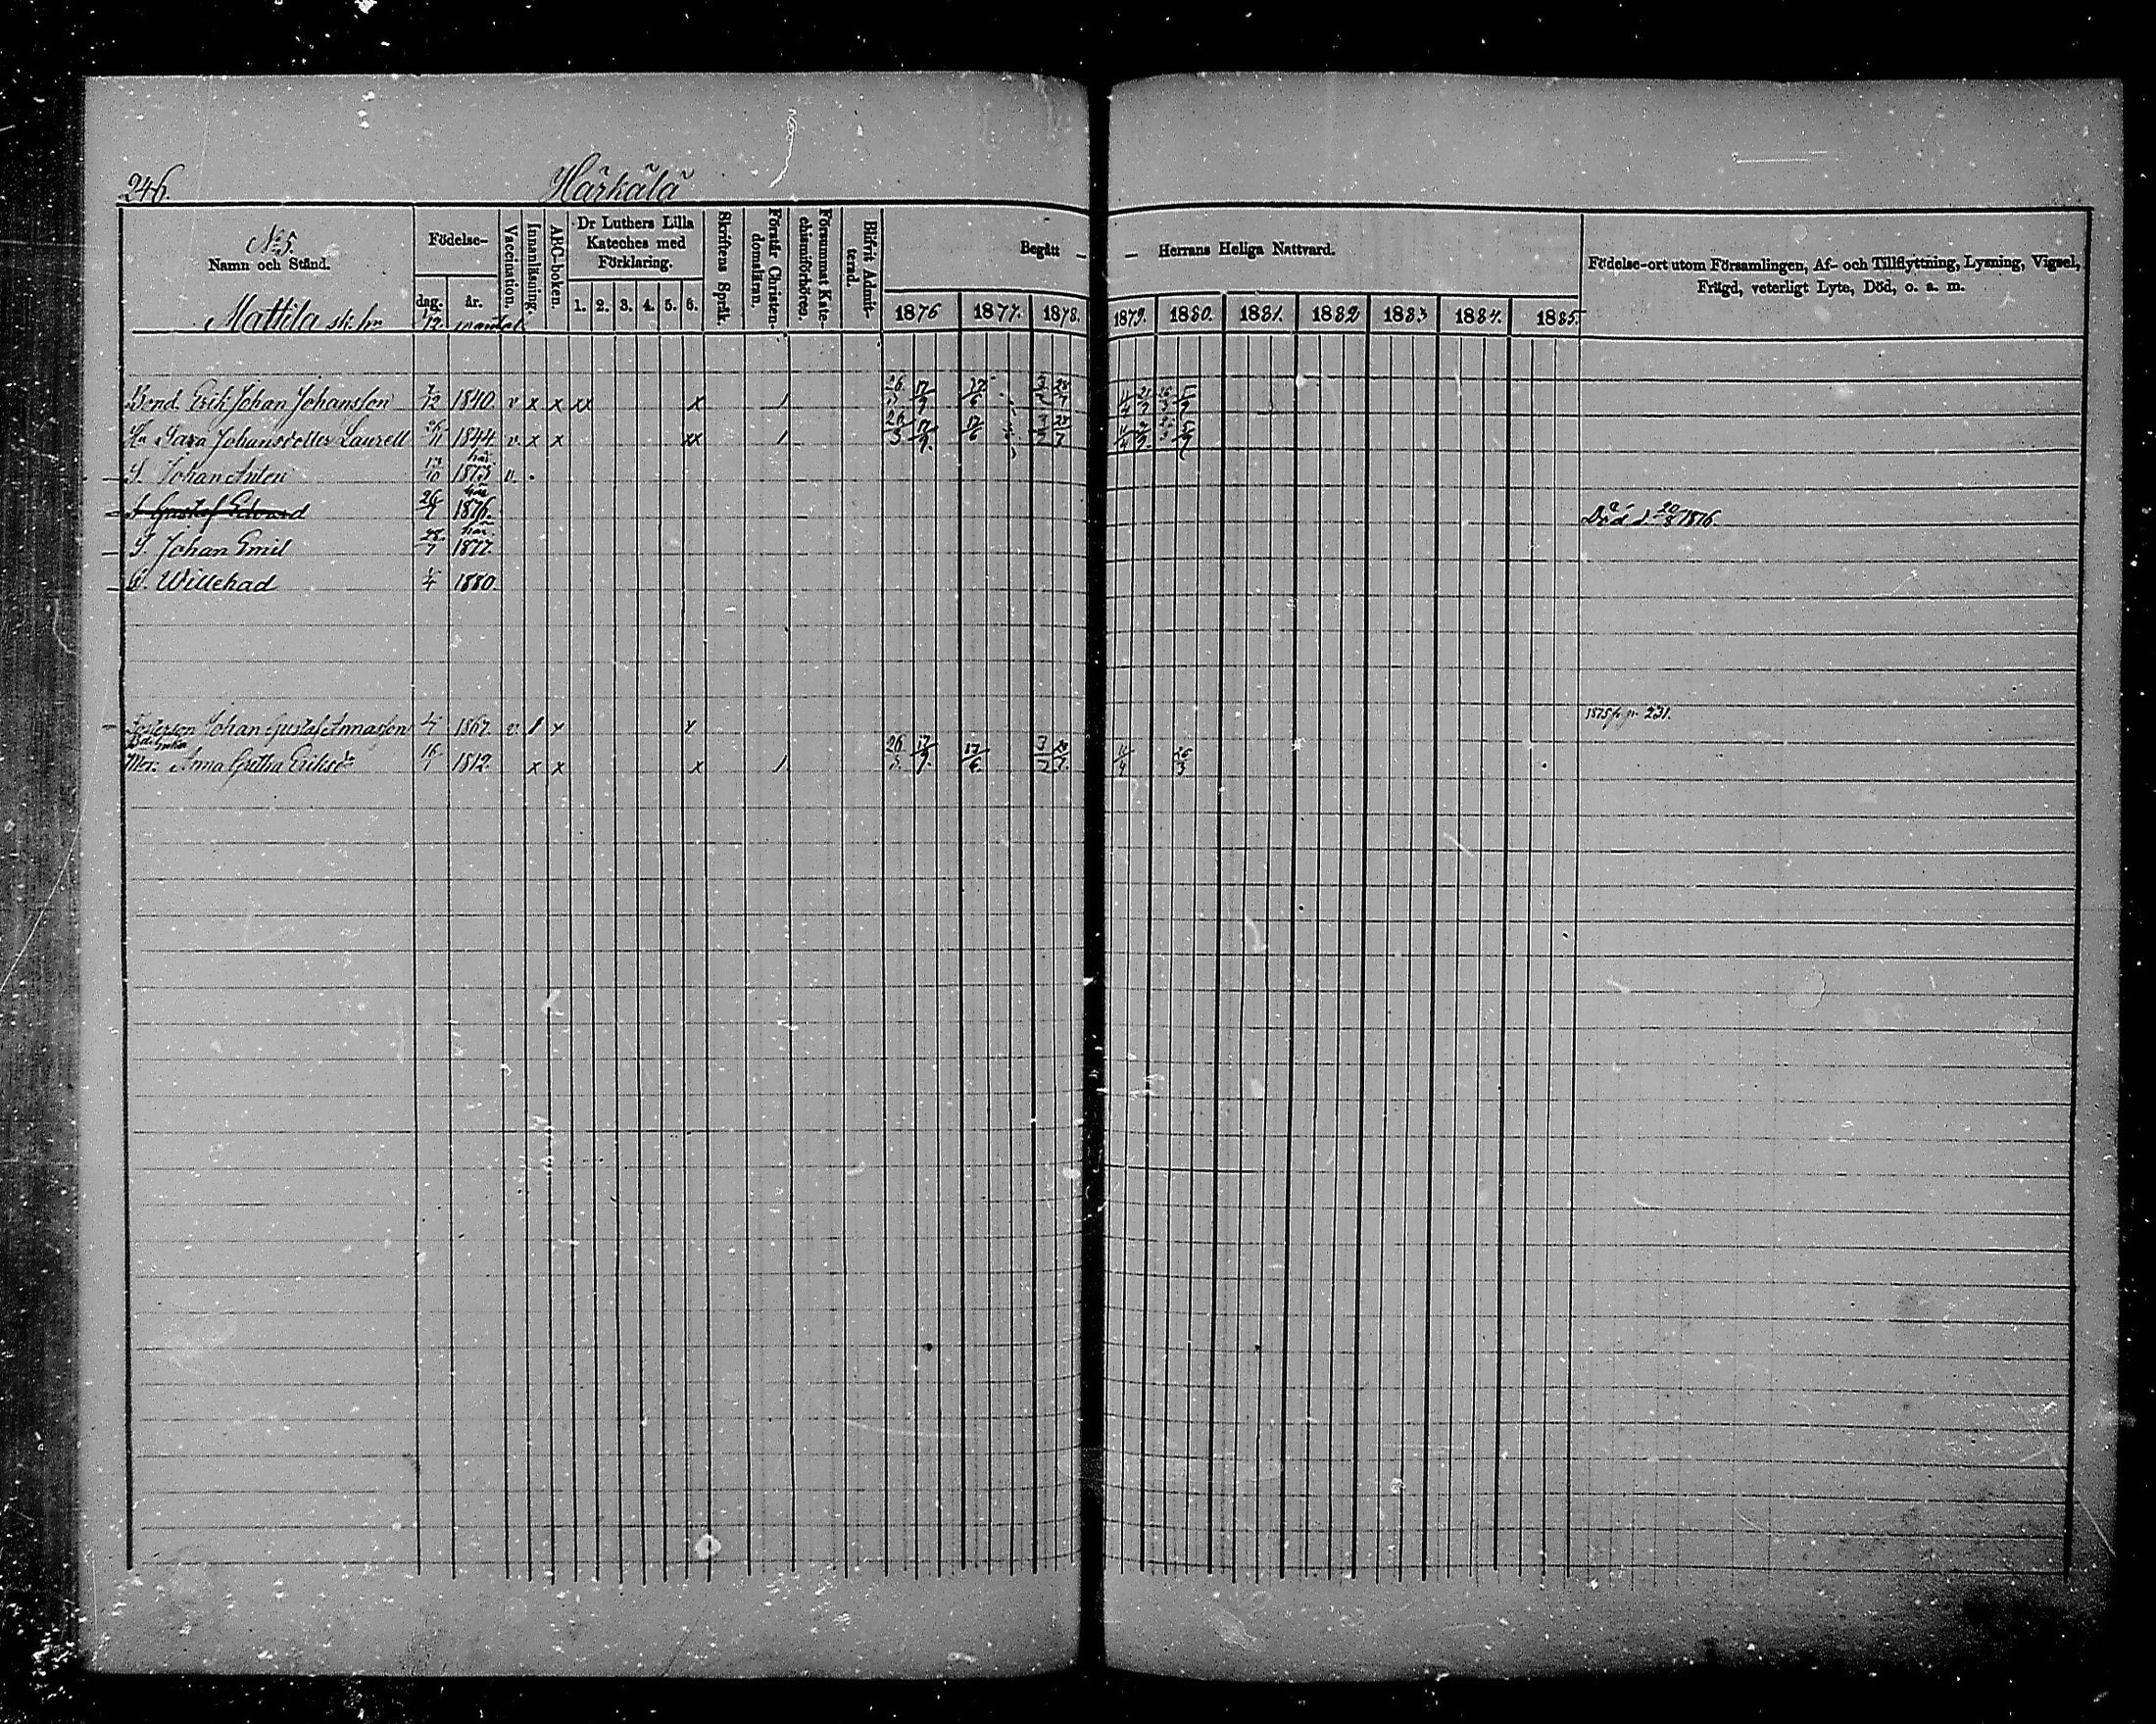 246.
Härkälä
N:o 5.
Namn och Stånd.
Mattila sk. hn 1/2 mantal
Födelse-
dag.
år.
Vaccination.
Innanläsning.
ABC-boken.
Dr Luthers Lilla Kateches med Förklaring.
1. 2. 3. 4. 5. 6.
Skriftens Språk.
Förstår Christendomsläran.
Försummat Katechismiförhören.
Blifvit Admitterad.
Begått
Herrans Heliga Nattvard.
1876 1877. 1878. 1879. 1880. 1881. 1882 1883 1884. 1885.
Födelse-ort utom Församlingen, Af- och Tillflyttning, Lysning, Vigsel,
Frägd, veterligt Lyte, Död, o. a. m.
Bond. Erik Johan Johansson 1840 v x x xx x 1 26/3 17/9 17/6 3/2 28/7
Hu Sara Johansdotter Laurell 26/11 1844 v. x x xx 1 26/3 17/9 17/6 3/2 28/7
S. Johan Anton 13/10 här 1873 v.
S Gustaf Edvard 26/7 här 1876. Död d. 20/8 1876.
S. Johan Emil 28/7 här 1877.
S. Willehad 1880.
Fosterson Johan Gustaf Annasson 1867. v. x 1875 fr. p. 231.
Mor. Anna Gretha Eriksdr 16/7 1812. x x x 1 26/3 17/9 17/6 3/2 28/7 26/3